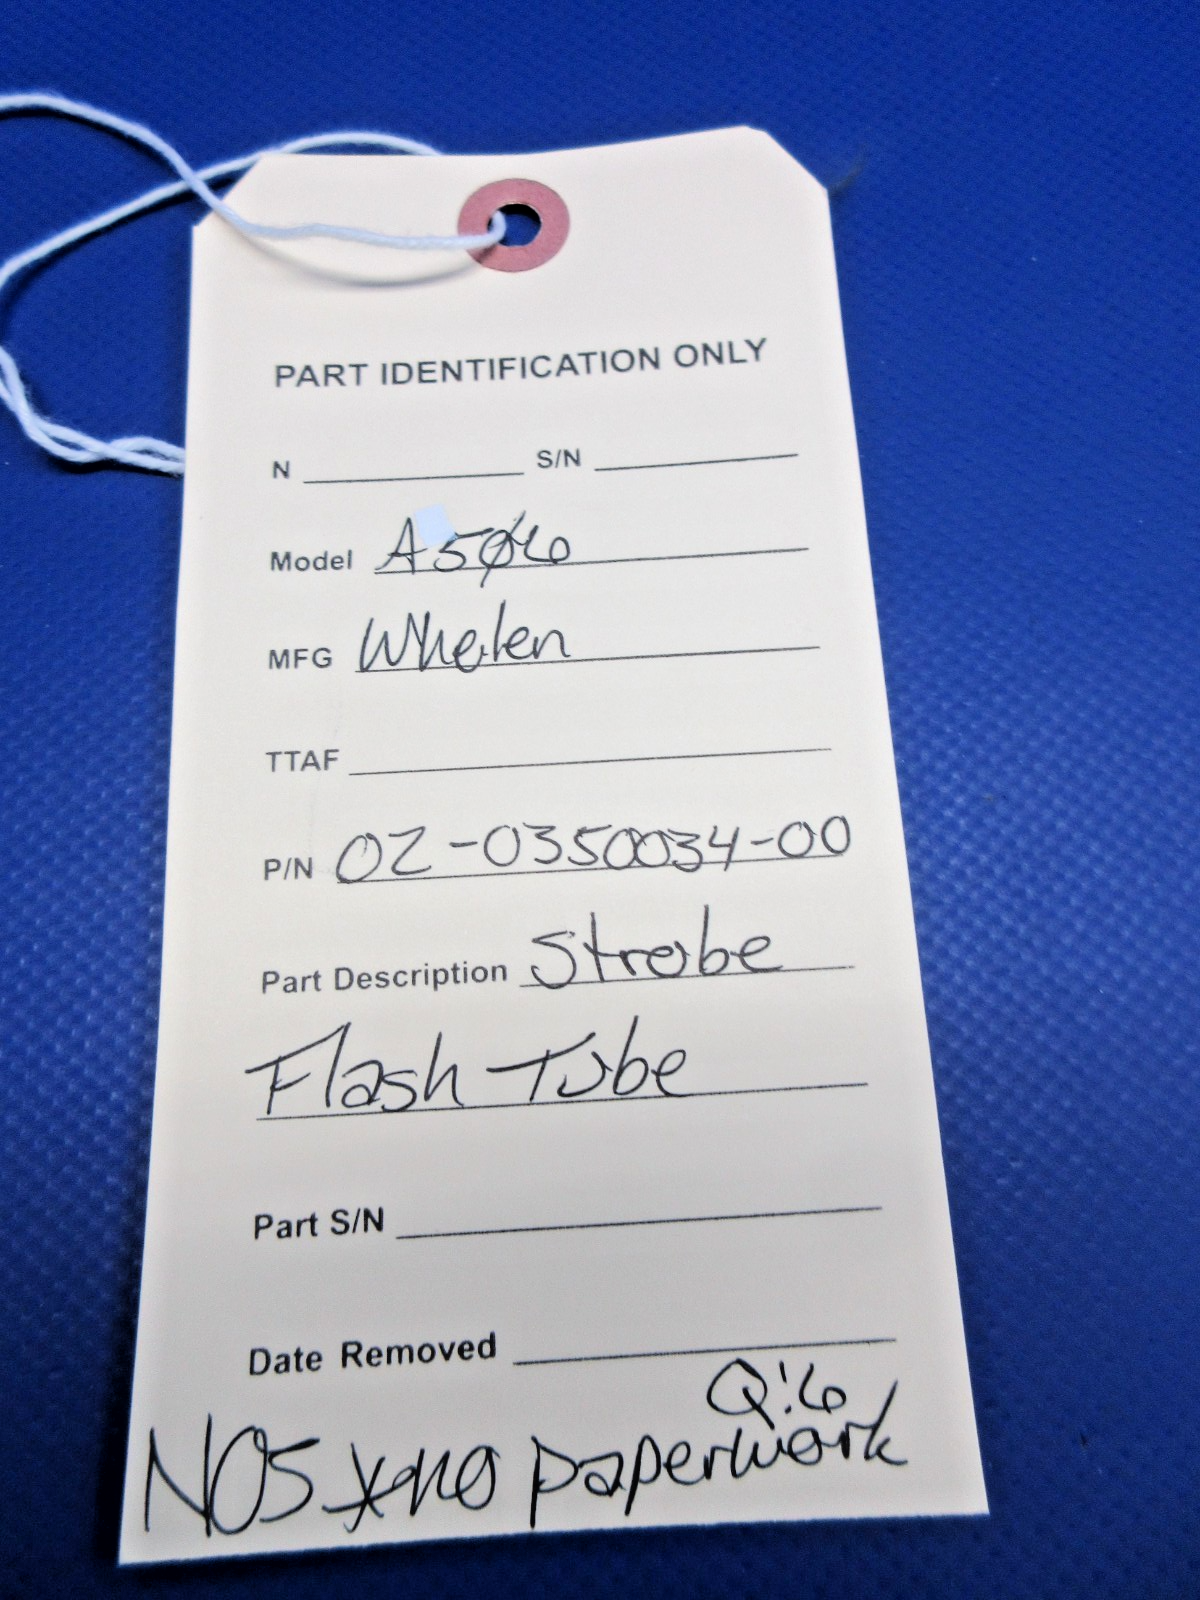 PART IDENTIFICATION ONLY
N S/N
Model A506
MFG Whelen
TTAF
P/N 02-0350034-00
Part Description Strobe
Flash Tube
Part S/N
Date Removed
Q:6
NOS *no paperwork